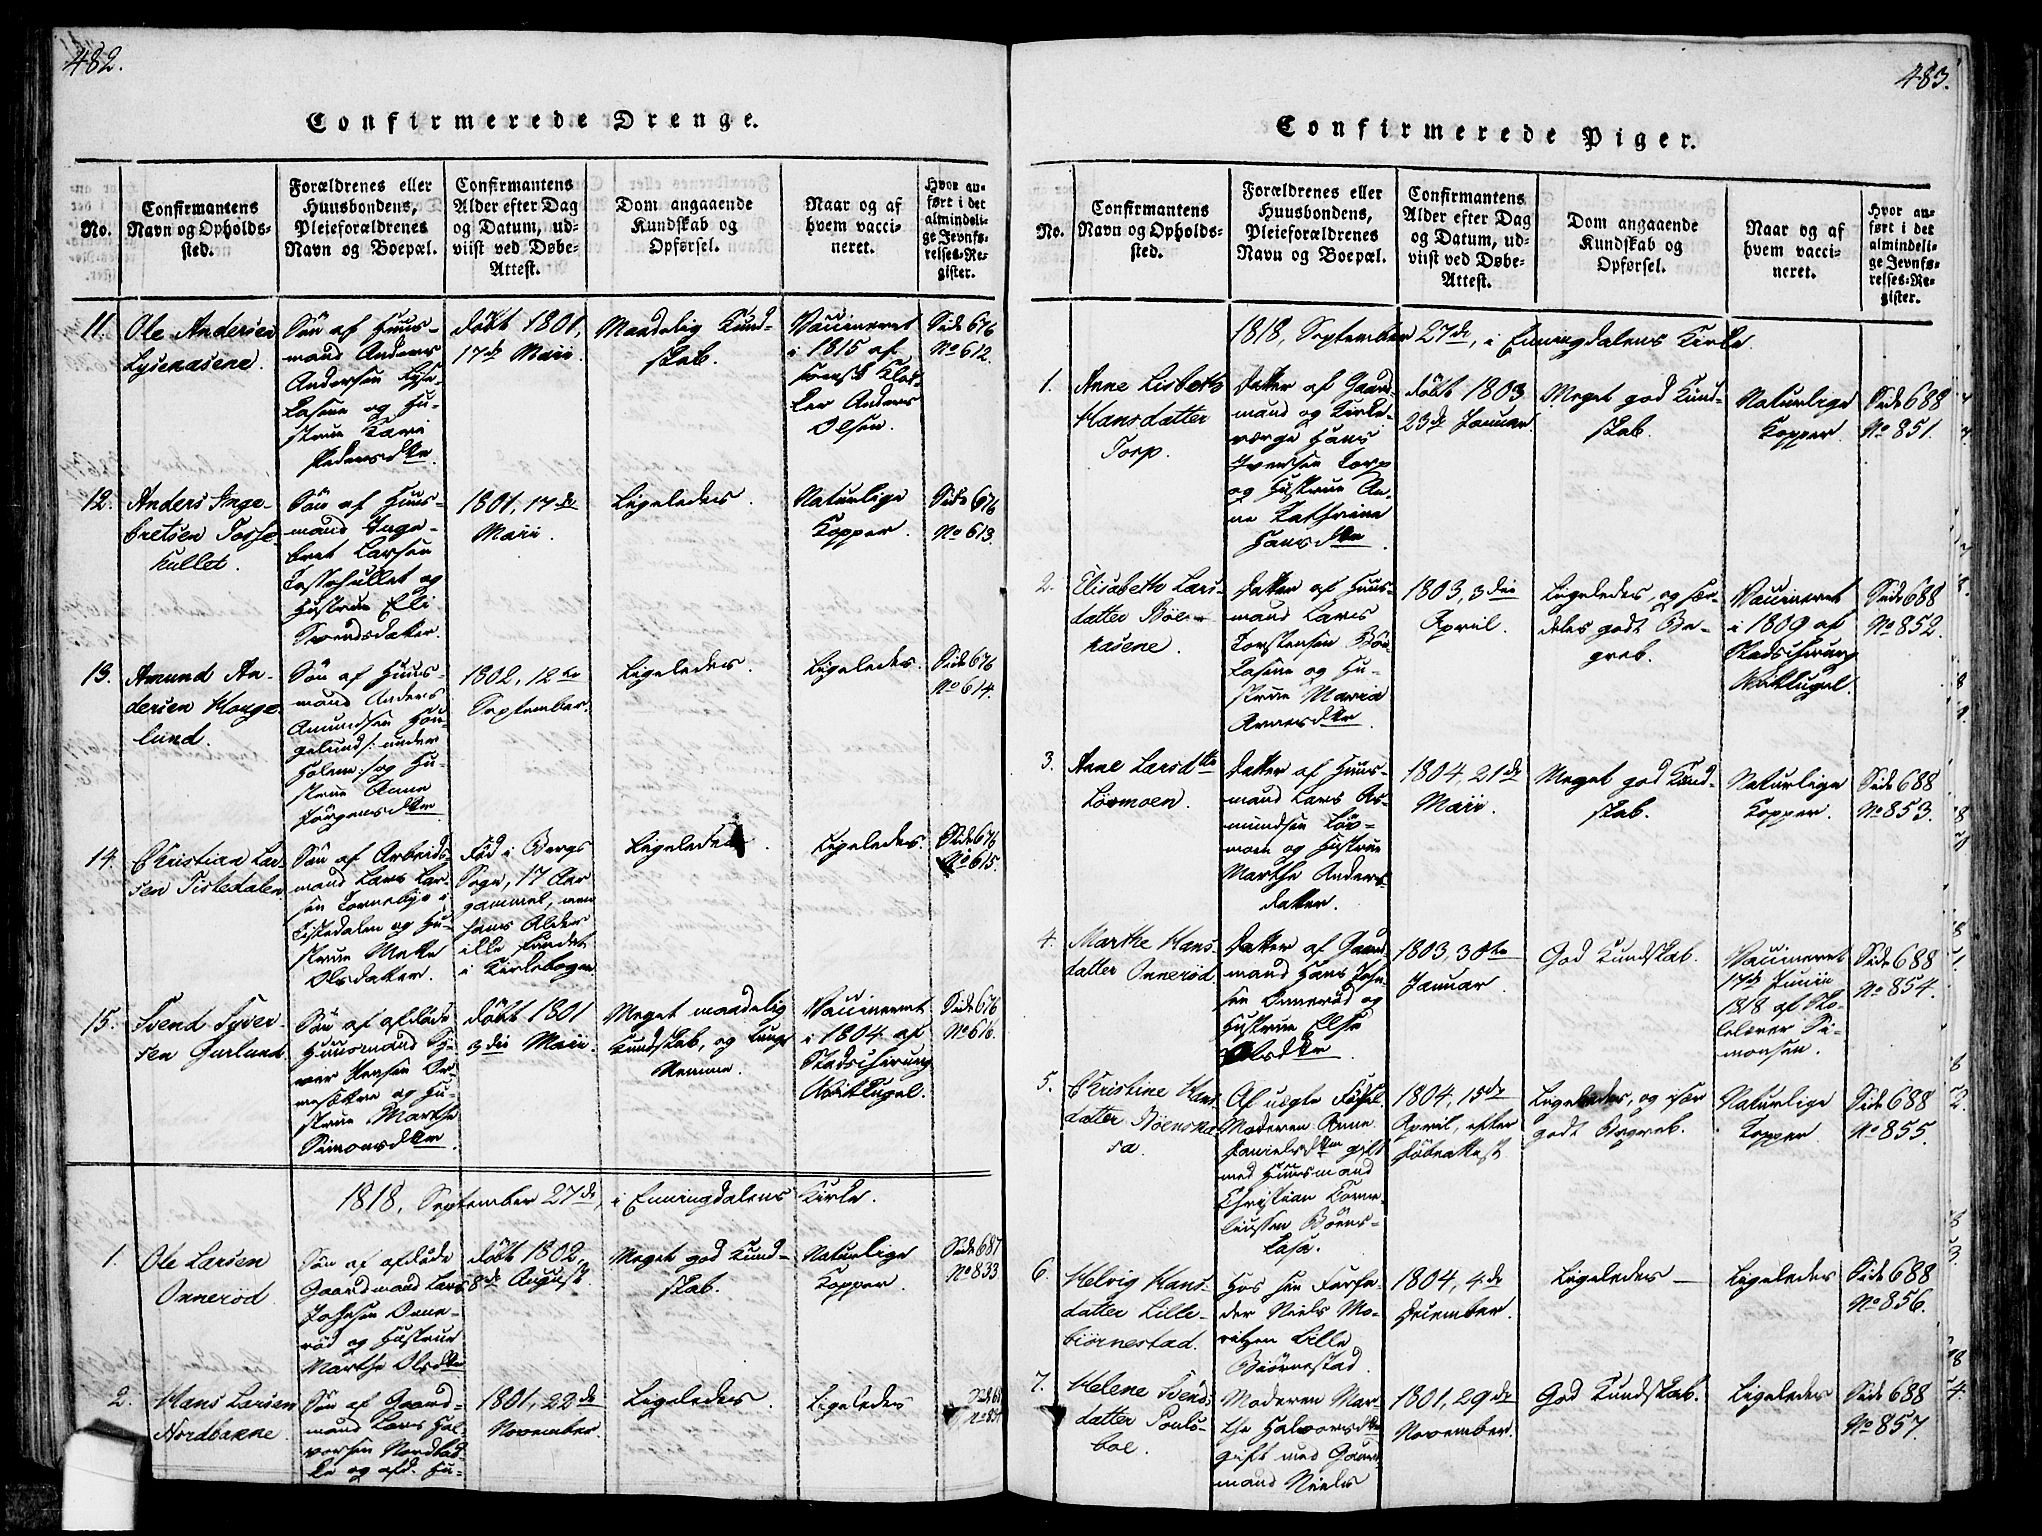 482.
Confirmerede Drenge.
No.
Confirmantens
Navn og Opholds-
sted.
Forældrenes eller
Huusbondens,
Pleieforældrenes
Navn og Boepæl.
Confirmantens
Alder efter Dag
og Datum, ud-
viist ved Døbe-
Attest.
Dom angaaende
Kundskab og
Opførsel.
Naar og af
hvem vacci-
neret.
Hvor an-
ført i det
almindeli-
ge Jevnfø-
relses-Re-
gister.
11.
Ole Andersen
Lysekasene.
Søn af Huus-
mand Anders
Andersen Lyse-
kasene og Hu-
strue Kari
Pedersdtter.
født 1801,
17de Maii.
Maadelig Kund-
skab.
Vaccineret
i 1815 af
svensk Klok-
ker Anders
Olsen.
Side 676
No 612.
12.
Anders Inge-
bretsen Tosse-
hullet.
Søn af Huus-
mand Inge-
bret Larsen
Tossehullet og
Hustrue Eli
Svendsdatter.
1801, 17de
Maii.
Ligeledes.
Naturlige
Kopper.
Side 676
No 613.
13.
Amund An-
dersen Hauge-
lund.
Søn af Huus-
mand Anders
Amundsen Hau-
gelund /: under
Holem :/ og Hu-
strue Anne
Jørgensdtter
1802, 12te
September.
Ligeledes.
Ligeledes.
Side 676
No 614.
14.
Christian Lar-
sen Tistedalen
Søn af Arbeids-
mand Lars Lar-
sen Torneby i
Tistedalen og Hu-
strue Mette
Olsdatter.
Fød i Bergs
Sogn, 17 Aar
gammel, men
hans Alder
ikke fundet
i Kirkebogen
Ligeledes.
Ligeledes.
Side 676
No 615.
15.
Svend Syver-
sen Gurlund.
Søn af afdøde
Huusmand Sy-
ver
og Hu-
strue Marthe
Simonsdtter.
født 1801
3die Maii.
Meget maadelig
Kundskab, og tungt
Nemme.
Vaccineret
i 1804 af
Stadschirurg
Wittkugel.
Side 676
No 616.
1818, September 27de, i Enningdalens Kirke.
1.
Ole Larsen
Onnerød.
Søn af afdøde
Gaardmand Lars
Johsen Onne-
rød og Hustrue
Marthe Olsdtter
født 1802,
8de August.
Meget god Kund-
skab.
Naturlige
Kopper.
Side 687
No 833
2.
Hans Larsen
Nordbakke.
Søn af Gaard-
mand Lars Hal-
vorsen Nordbak-
ke og afd. Hu-
1801, 22de
November.
Ligeledes.
Ligeledes
483.
Confirmerede Piger.
No.
Confirmantens
Navn og Opholds-
sted.
Forældrenes eller
Huusbondens,
Pleieforældrenes
Navn og Boepæl.
Confirmantens
Alder efter Dag
og Datum, ud-
viist ved Døbe-
Attest.
Dom angaaende
Kundskab og
Opførsel.
Naar og af
hvem vacci-
neret.
Hvor an-
ført i det
almindeli-
ge Jevnfø-
relses-Re-
gister.
1818, September 27de, i Enningdalens Kirke.
1.
Anne Lisbeth
Hansdatter
Torp.
Datter af Gaard-
mand og Kirke-
værge Hans
Iversen Torp
og Hustrue An-
ne Kathrine
Hansdtter.
født 1803
23de Januar.
Meget god Kund-
skab.
Naturlige
Kopper.
Side 688
No 851.
2.
Elisabeth Lars-
datter Böe-
kasene.
Datter af Huus-
mand Lars
Torstensen Böe-
kasene og Hu-
strue Maria
Arnesdtter
1803, 3die
April.
Ligeledes, og sær-
deles godt Be-
greb.
Vaccineret
i 1809 af
Stadschirurg
Wittkugel.
Side 688
No 852.
3.
Anne Larsdtte
Løvmoen.
Datter af Huus-
mand Lars As-
mundsen Løv-
moen og Hustrue
Marthe Anders-
datter.
1804, 21de
Maii.
Meget god Kund-
skab.
Naturlige
Kopper.
Side 688
No 853.
4.
Marthe Hans-
datter Onnerød.
Datter af Gaard-
mand Hans Joh-
sen Onnerød og
Hustrue Else
Olsdtter.
1803, 30te
Januar.
God Kundskab.
Vaccineret
17de Junii
1818 af Sko-
lelærer Si-
monsen.
Side 688
No 854.
5.
Christine Hans-
datter Böenska-
sa.
Af uægte Fødsel.
Moderen Anne
Danielsdtter gift
med Huusmand
Christian Corne-
liussen Böens-
kasa.
1804, 15de
April, efter
Døbeattest
Ligeledes, og især
godt Begreb.
Naturlige
Kopper.
Side 688
No 855.
6.
Helvig Hans-
datter Lille-
biørnestad.
Hos sin Farfa-
der Niels Mo-
ritzen Lille
Biørnestad.
1804, 4de
December.
Ligeledes
Ligeledes
Side 688
No 856.
7.
Helene Svends-
datter Pouls-
boe.
Moderen Mar-
the Halvorsdtter
Gift med Gaard-
mand Niels
1801, 29de
November.
God Kundskab.
Ligeledes
Side 688
No 857.